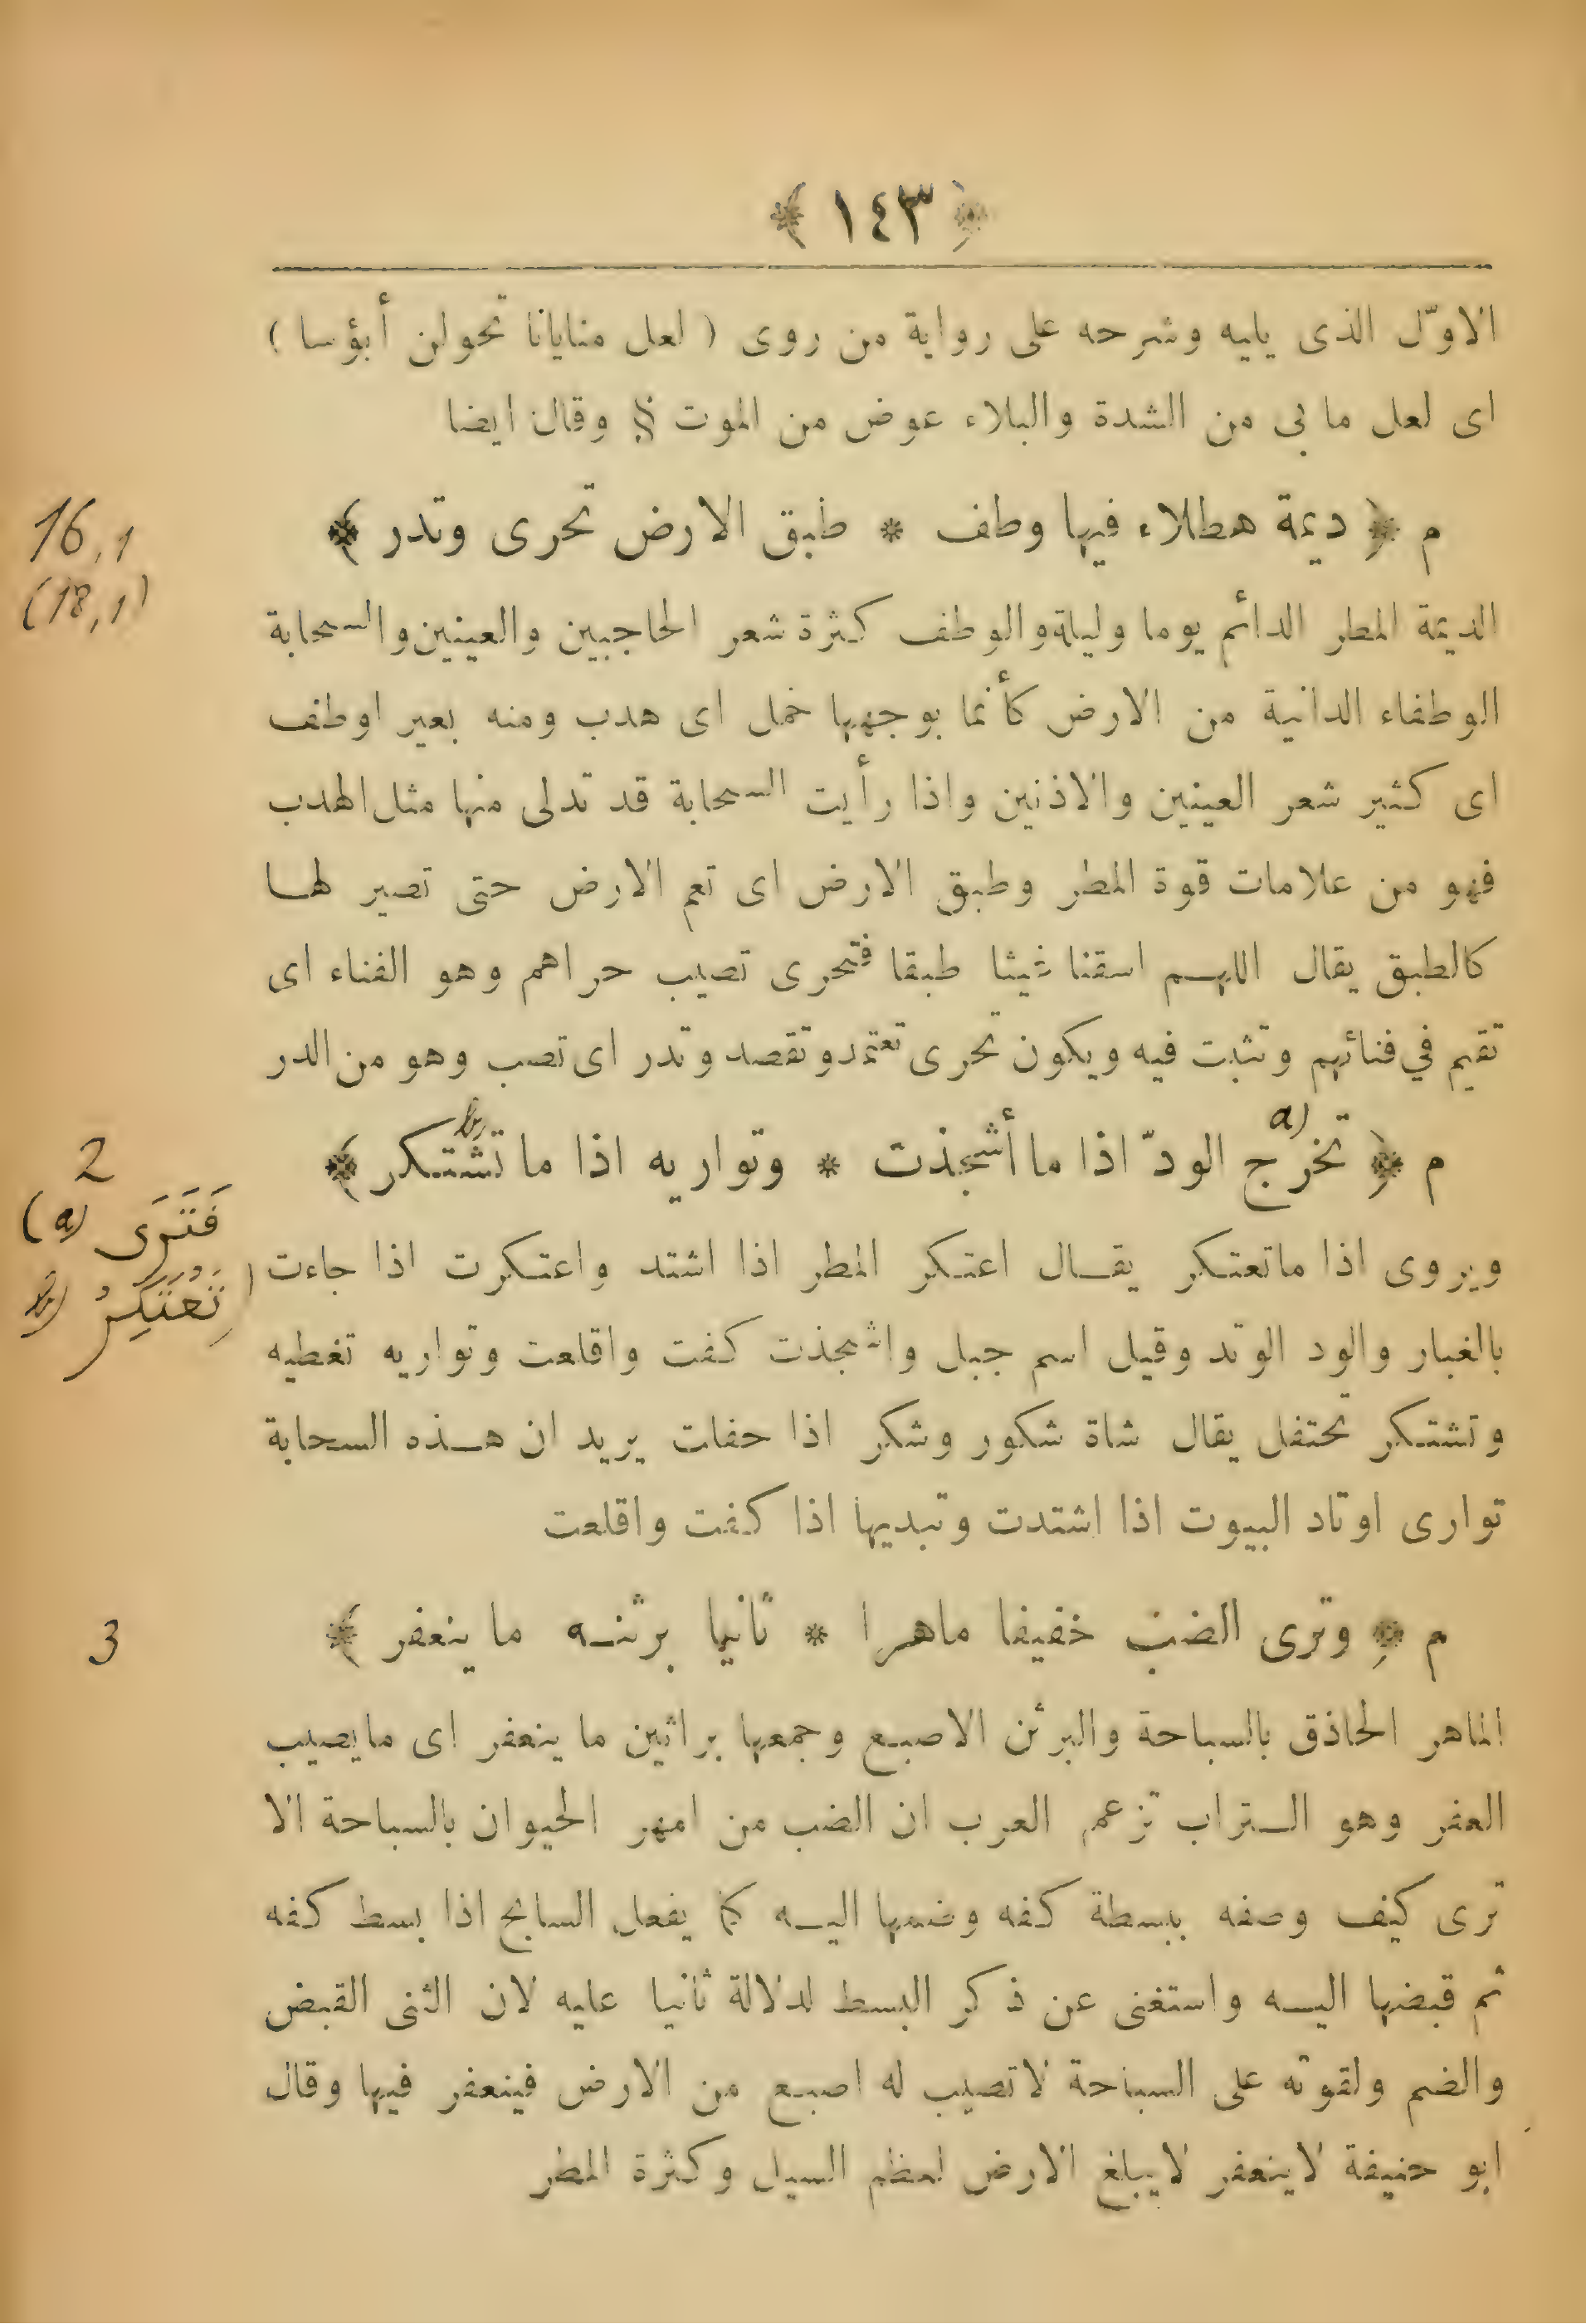 ﴿ ١٤٣ ﴾
الاوّل الذى يليه وشرحه على رواية من روى ( لعل منايانا تحولن أبؤسا )
اى لعل ما بى من الشدة والبلاء عوض من الموت § وقال ايضا
م ﴿ ديمة هطلاء فيها وطف * طبق الارض تحرى وتدر ﴾
16,1
(18,1)
الديمة المطر الدائم يوما وليلة والوطف كثرة شعر الحاجبين والعينين والسحابة
الوطفاء الدانية من الارض كأنما بوجهها خمل اى هدب ومنه بعير اوطف
اى كثير شعر العينين والاذنين واذا رأيت السحابة قد تدلى منها مثل الهدب
فهو من علامات قوة المطر وطبق الارض اى تعم الارض حتى تصير لها
كالطبق يقال اللهم اسقنا غيثا طبقا فتحرى تصيب حراهم وهو الفناء اى
تقيم في فنائهم وتثبت فيه ويكون تحرى تعتمد وتقصد وتدر اى تصب وهو من الدر
م ﴿ تخرّج الودّ اذا ما أشجذت * وتواريه اذا ما تشتكر ﴾
a)
b)
2
(a) فَتَرَى
b) تَعْتَكِرُ
ويروى اذا ماتعتكر يقال اعتكر المطر اذا اشتد واعتكرت اذا جاءت
بالغبار والود الوتد وقيل اسم جبل واشجذت كفت واقلعت وتواريه تغطيه
وتشتكر تحتفل يقال شاة شكور وشكر اذا حفلت يريد ان هذه السحابة
توارى اوتاد البيوت اذا اشتدت وتبديها اذا كفت واقلعت
م ﴿ وترى الضب خفيفا ماهرا * ثانيا برثنه ما ينعفر ﴾
3
الماهر الحاذق بالسباحة والبرثن الاصبع وجمعها براثين ما ينعفر اى ما يصيب
العفر وهو التراب تزعم العرب ان الضب من امهر الحيوان بالسباحة الا
ترى كيف وصفه ببسطة كفه وضمها اليه كما يفعل السابح اذا بسط كفه
ثم قبضها اليه واستغنى عن ذكر البسط لدلالة ثانيا عليه لان الثنى القبض
والضم ولقوته على السباحة لاتصيب له اصبع من الارض فينعفر فيها وقال
ابو حنيفة لاينعفر لايبلغ الارض لعظم السيل وكثرة المطر